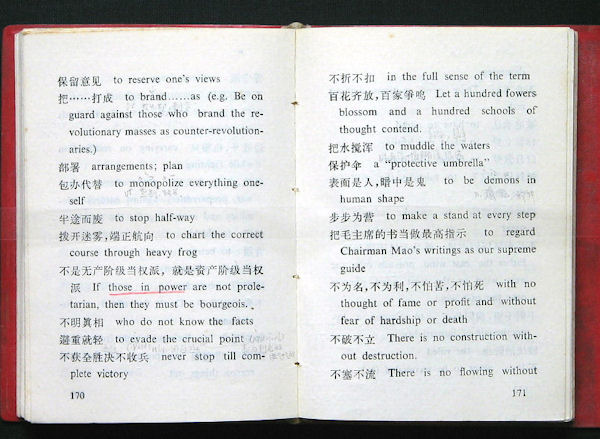 保留意见 to reserve one's views
把……打成 to brand……as (e.g. Be on
guard against those who brand the re-
volutionary masses as counter-revolution-
aries.)
部署 arrangements; plan
包办代替 to monopolize everything one-
self
半途而废 to stop half-way
拨开迷雾,端正航向 to chart the correct
course through heavy frog
不是无产阶级当权派, 就是资产阶级当权
派 If those in power are not prole-
tarian, then they must be bourgeois.
不明真相 who do not know the facts
避重就轻 to evade the crucial point
不获全胜决不收兵 never stop till com-
plete victory
170
不折不扣 in the full sense of the term
百花齐放,百家争鸣 Let a hundred fowers
blossom and a hundred schools of
thought contend.
把水搅浑 to muddle the waters
保护伞 a "protective umbrella"
表面是人,暗中是鬼 to be demons in
human shape
步步为营 to make a stand at every step
把毛主席的书当做最高指示 to regard
Chairman Mao's writings as our supreme
guide
不为名,不为利,不怕苦,不怕死 with no
thought of fame or profit and without
fear of hardship or death
不破不立 There is no construction with-
out destruction.
不塞不流 There is no flowing without
171